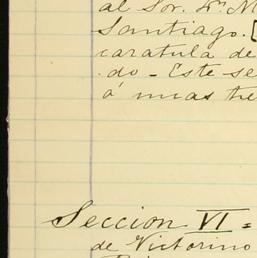 al Sor. Dn. M
Santiago. [
caratula de
do - Este se
á unas tre
Seccion VI =
de Victorino